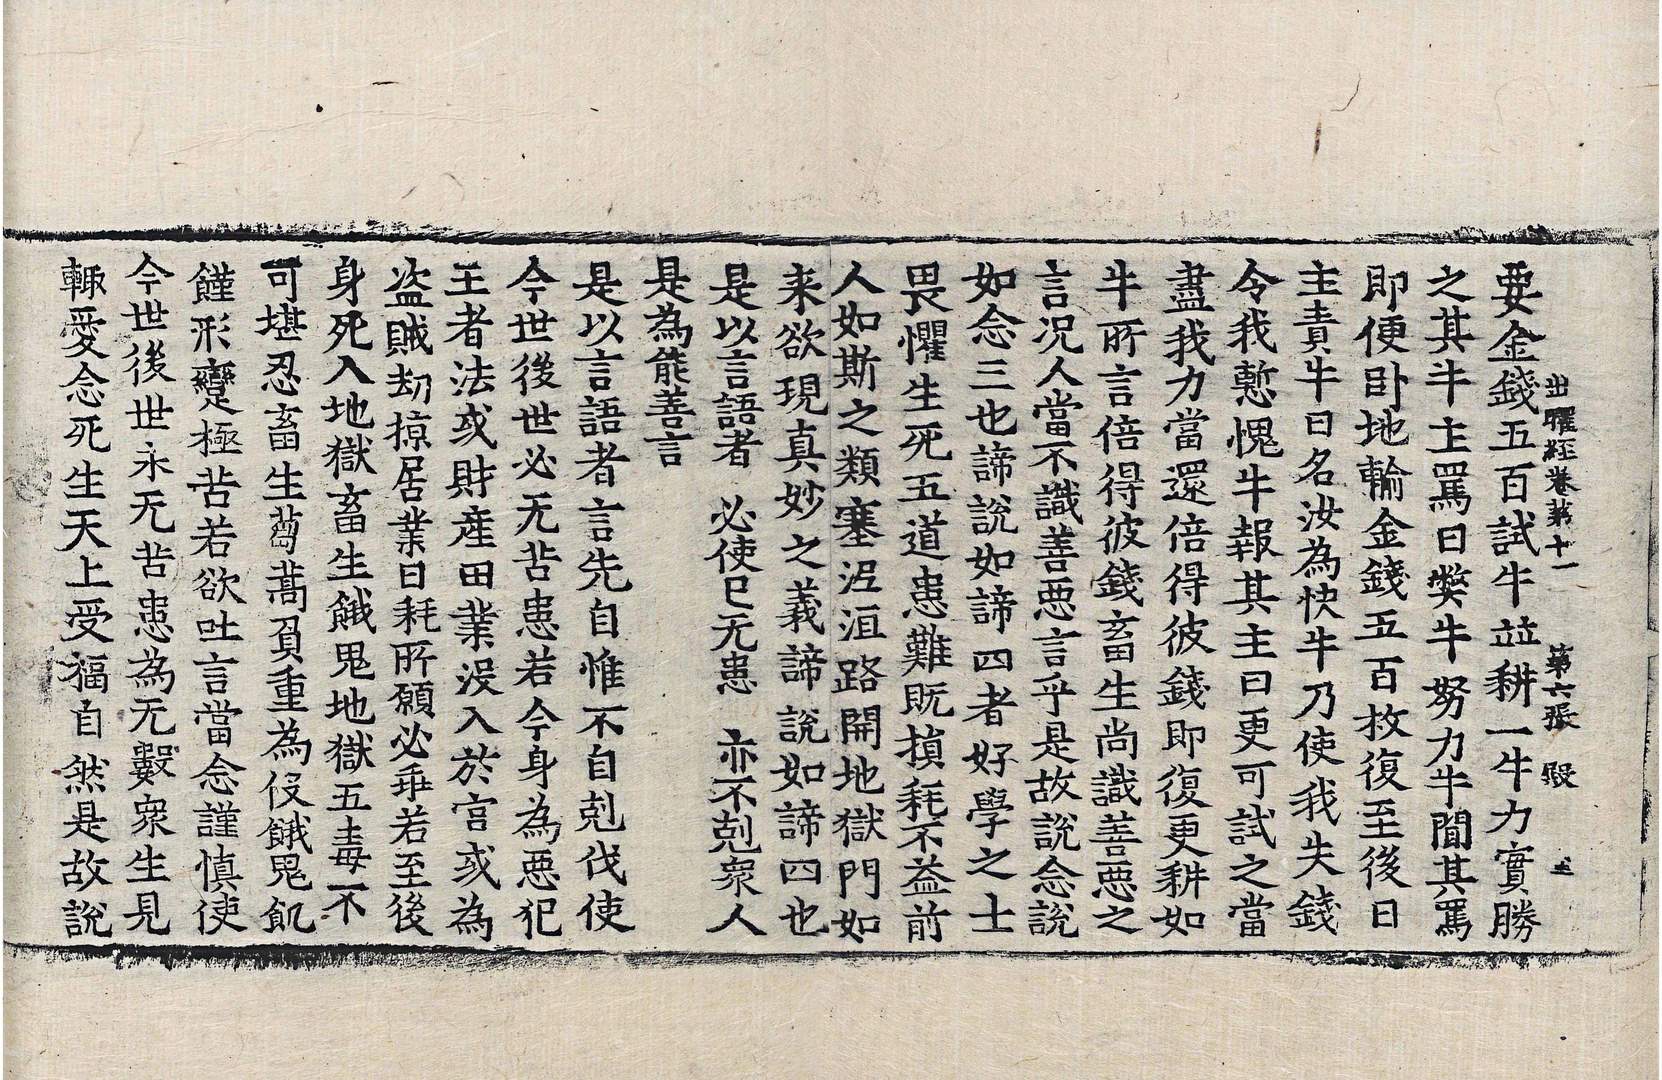 出曜經卷苐十一 苐六張 毀
要金錢五百試牛並耕一牛力實勝
之其牛主罵曰弊牛努力牛聞其罵
即便卧地輸金錢五百枚復至後日
主責牛曰名汝為快牛乃使我失錢
令我慙愧牛報其主曰更可試之當
盡我力當還倍得彼錢即復更耕如
牛所言倍得彼錢畜生尚識善惡之
言况人當不識善惡言乎是故說念說
如念三也諦說如諦四者好學之士
畏懼生死五道患難既損耗不益前
人如斯之類塞泥洹路開地獄門如
来欲現真妙之義諦說如諦四也
是以言語者 必使已无患 亦不剋衆人
是為能善言
是以言語者言先自惟不自剋伐使
今世後世必无苦患若今身為惡犯
王者法或財產田業沒入於官或為
盜賊刼掠居業日耗所願必乖若至後
身死入地獄畜生餓鬼地獄五毒不
可堪忍畜生蒭藁負重為役餓鬼飢
饉形變極苦若欲吐言當念謹慎使
今世後世永无苦患為无數衆生見
輙愛念死生天上受福自然是故說